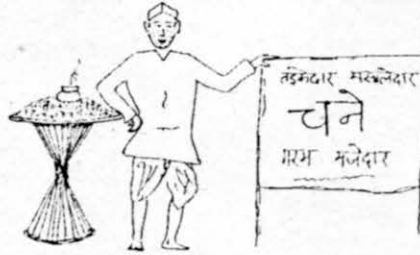 तड़केदार मसालेदार
चने
गरम मजेदार